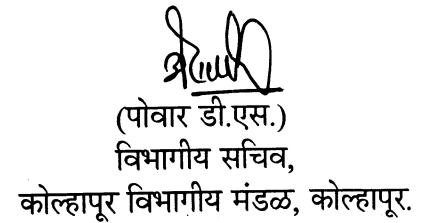 (पोवार डी.एस.)
विभागीय सचिव,
कोल्हापूर विभागीय मंडळ, कोल्हापूर.